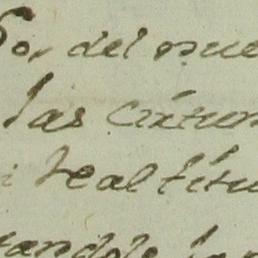 So, del nue
las cirtun
i Real titu
tandole la